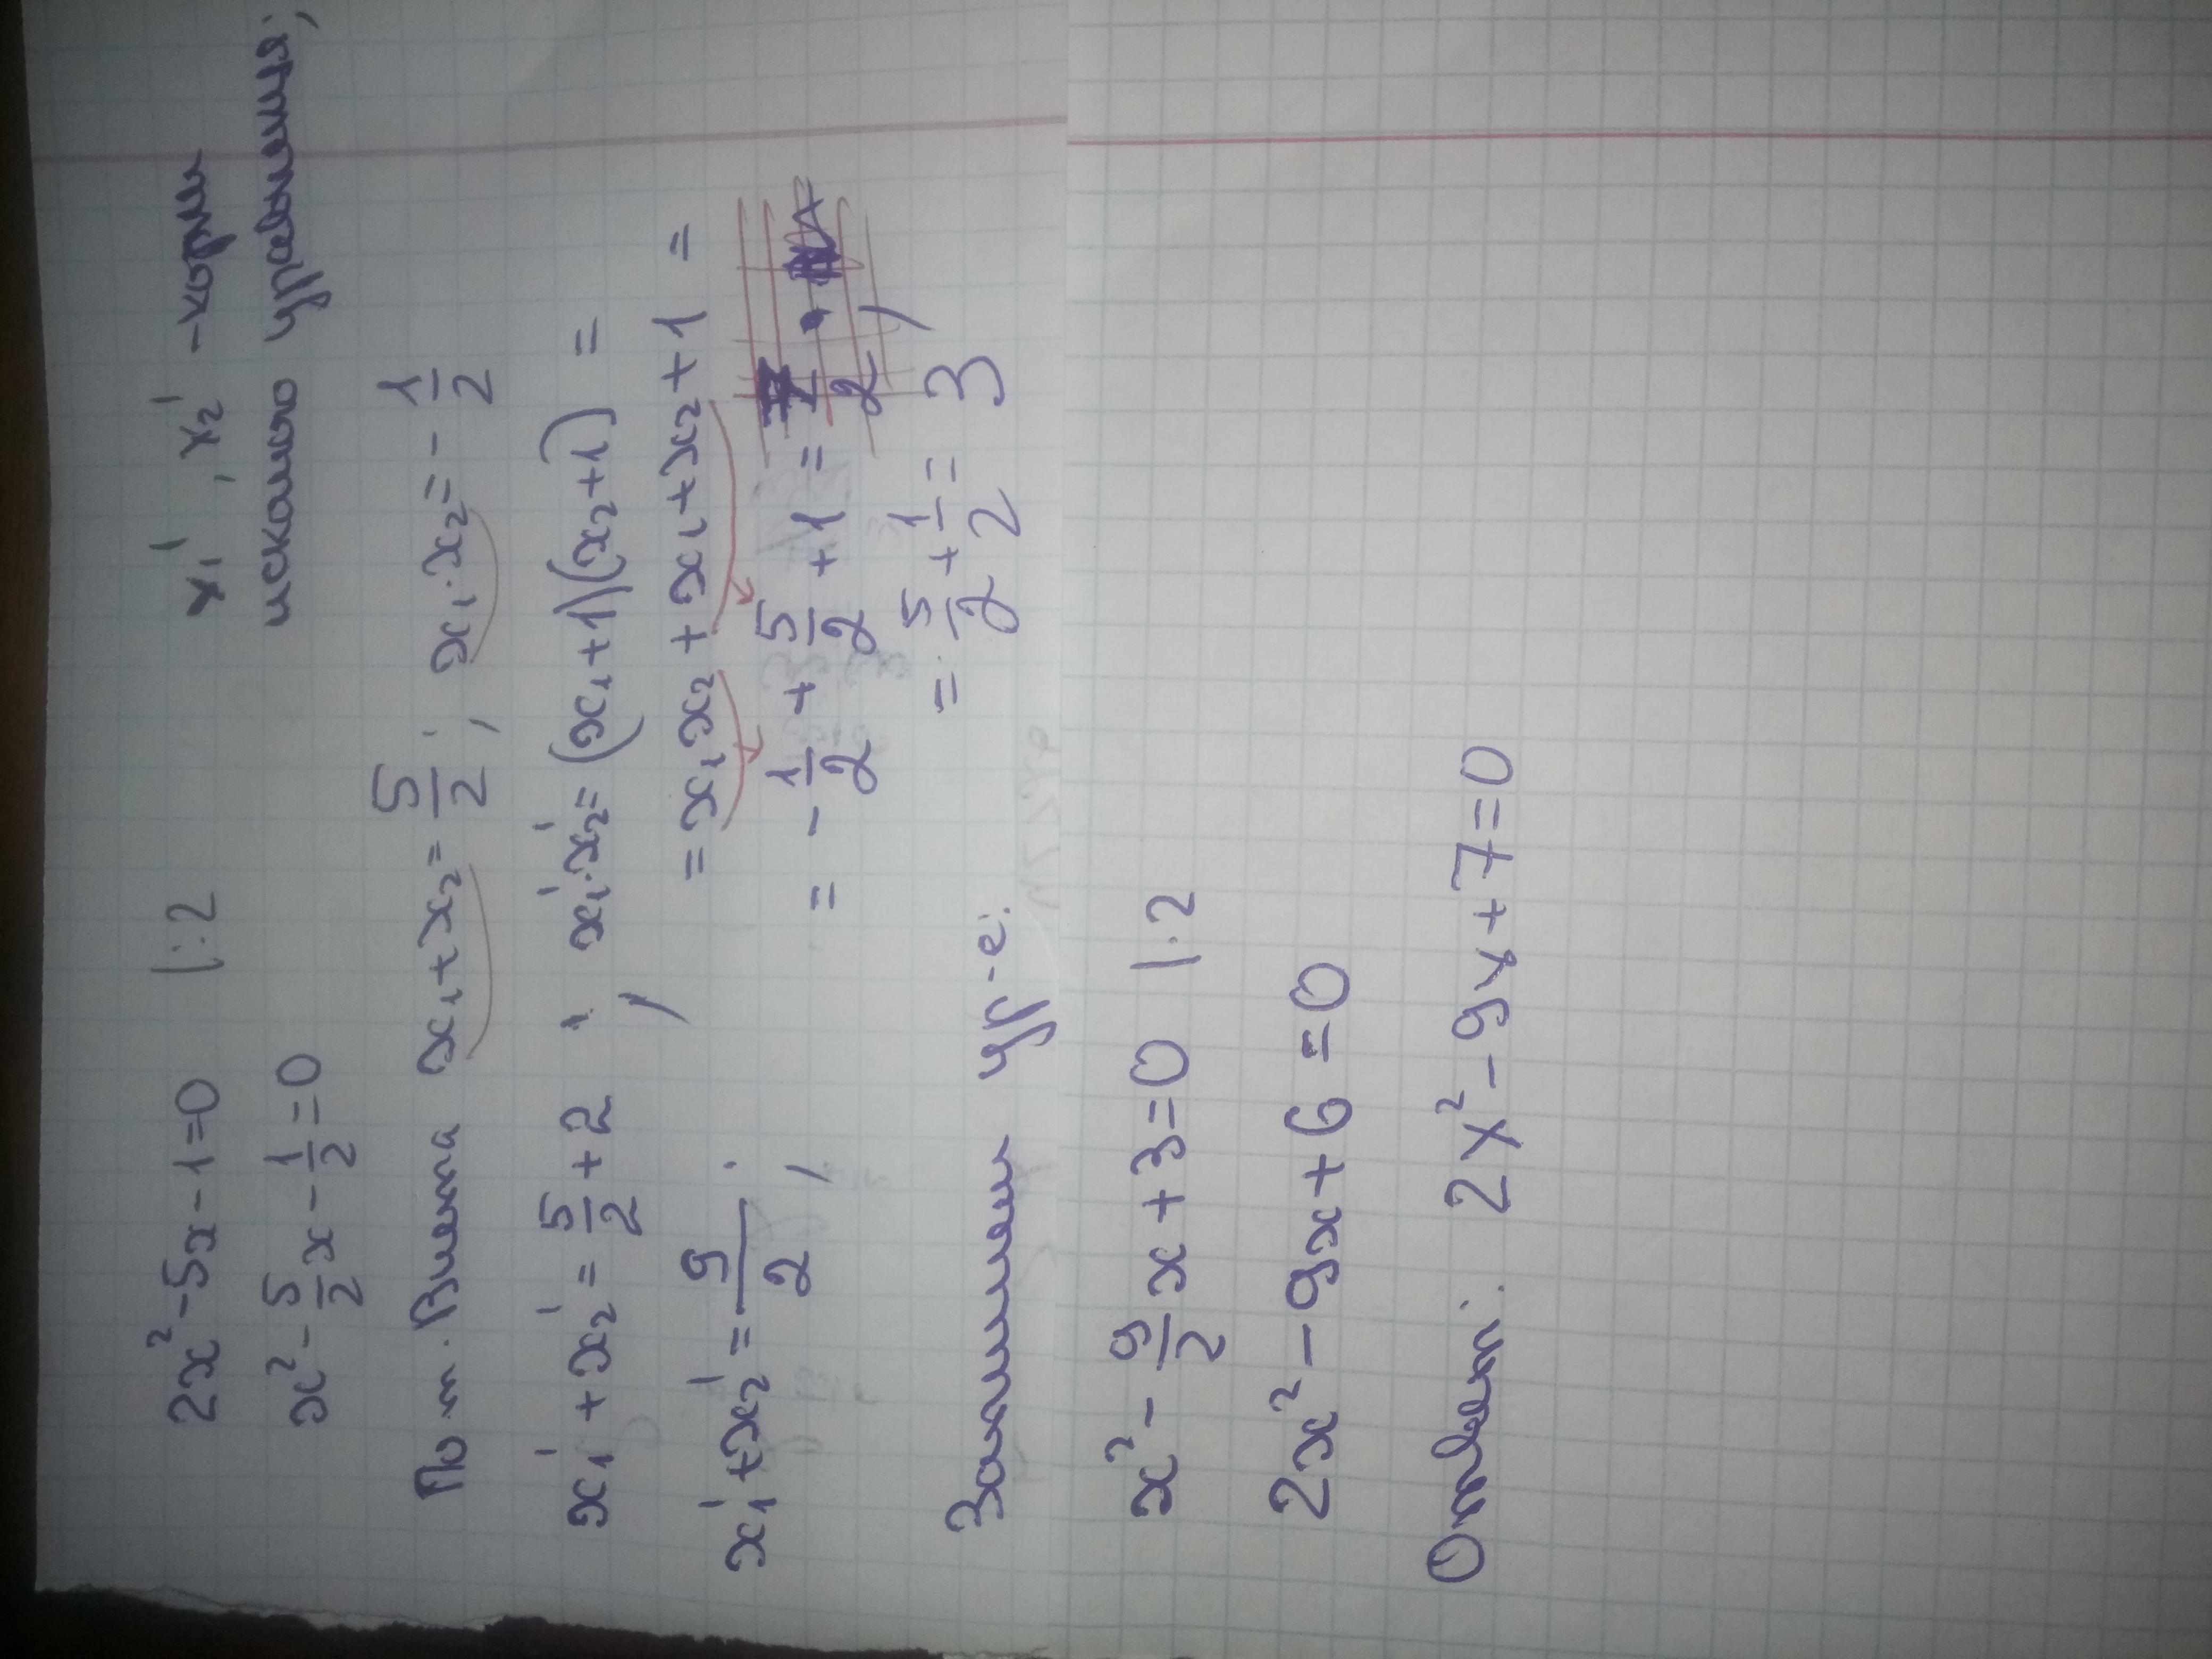 2x² - 5x - 1 = 0 |:2 x₁', x₂' - корни
x² - 5/2 x - 1/2 = 0 искомого уравнения;
По т. Виета x₁ + x₂ = 5/2; x₁·x₂ = - 1/2
x₁' + x₂' = 5/2 + 2; x₁'·x₂' = (x₁+1)(x₂+1) =
= x₁x₂ + x₁ + x₂ + 1 =
x₁' + x₂' = 9/2; = - 1/2 + 5/2 + 1 =
= 5/2 + 1/2 = 3
Запишем ур-е:
x² - 9/2 x + 3 = 0 |·2
2x² - 9x + 6 = 0
Ответ: 2x² - 9x + 7 = 0